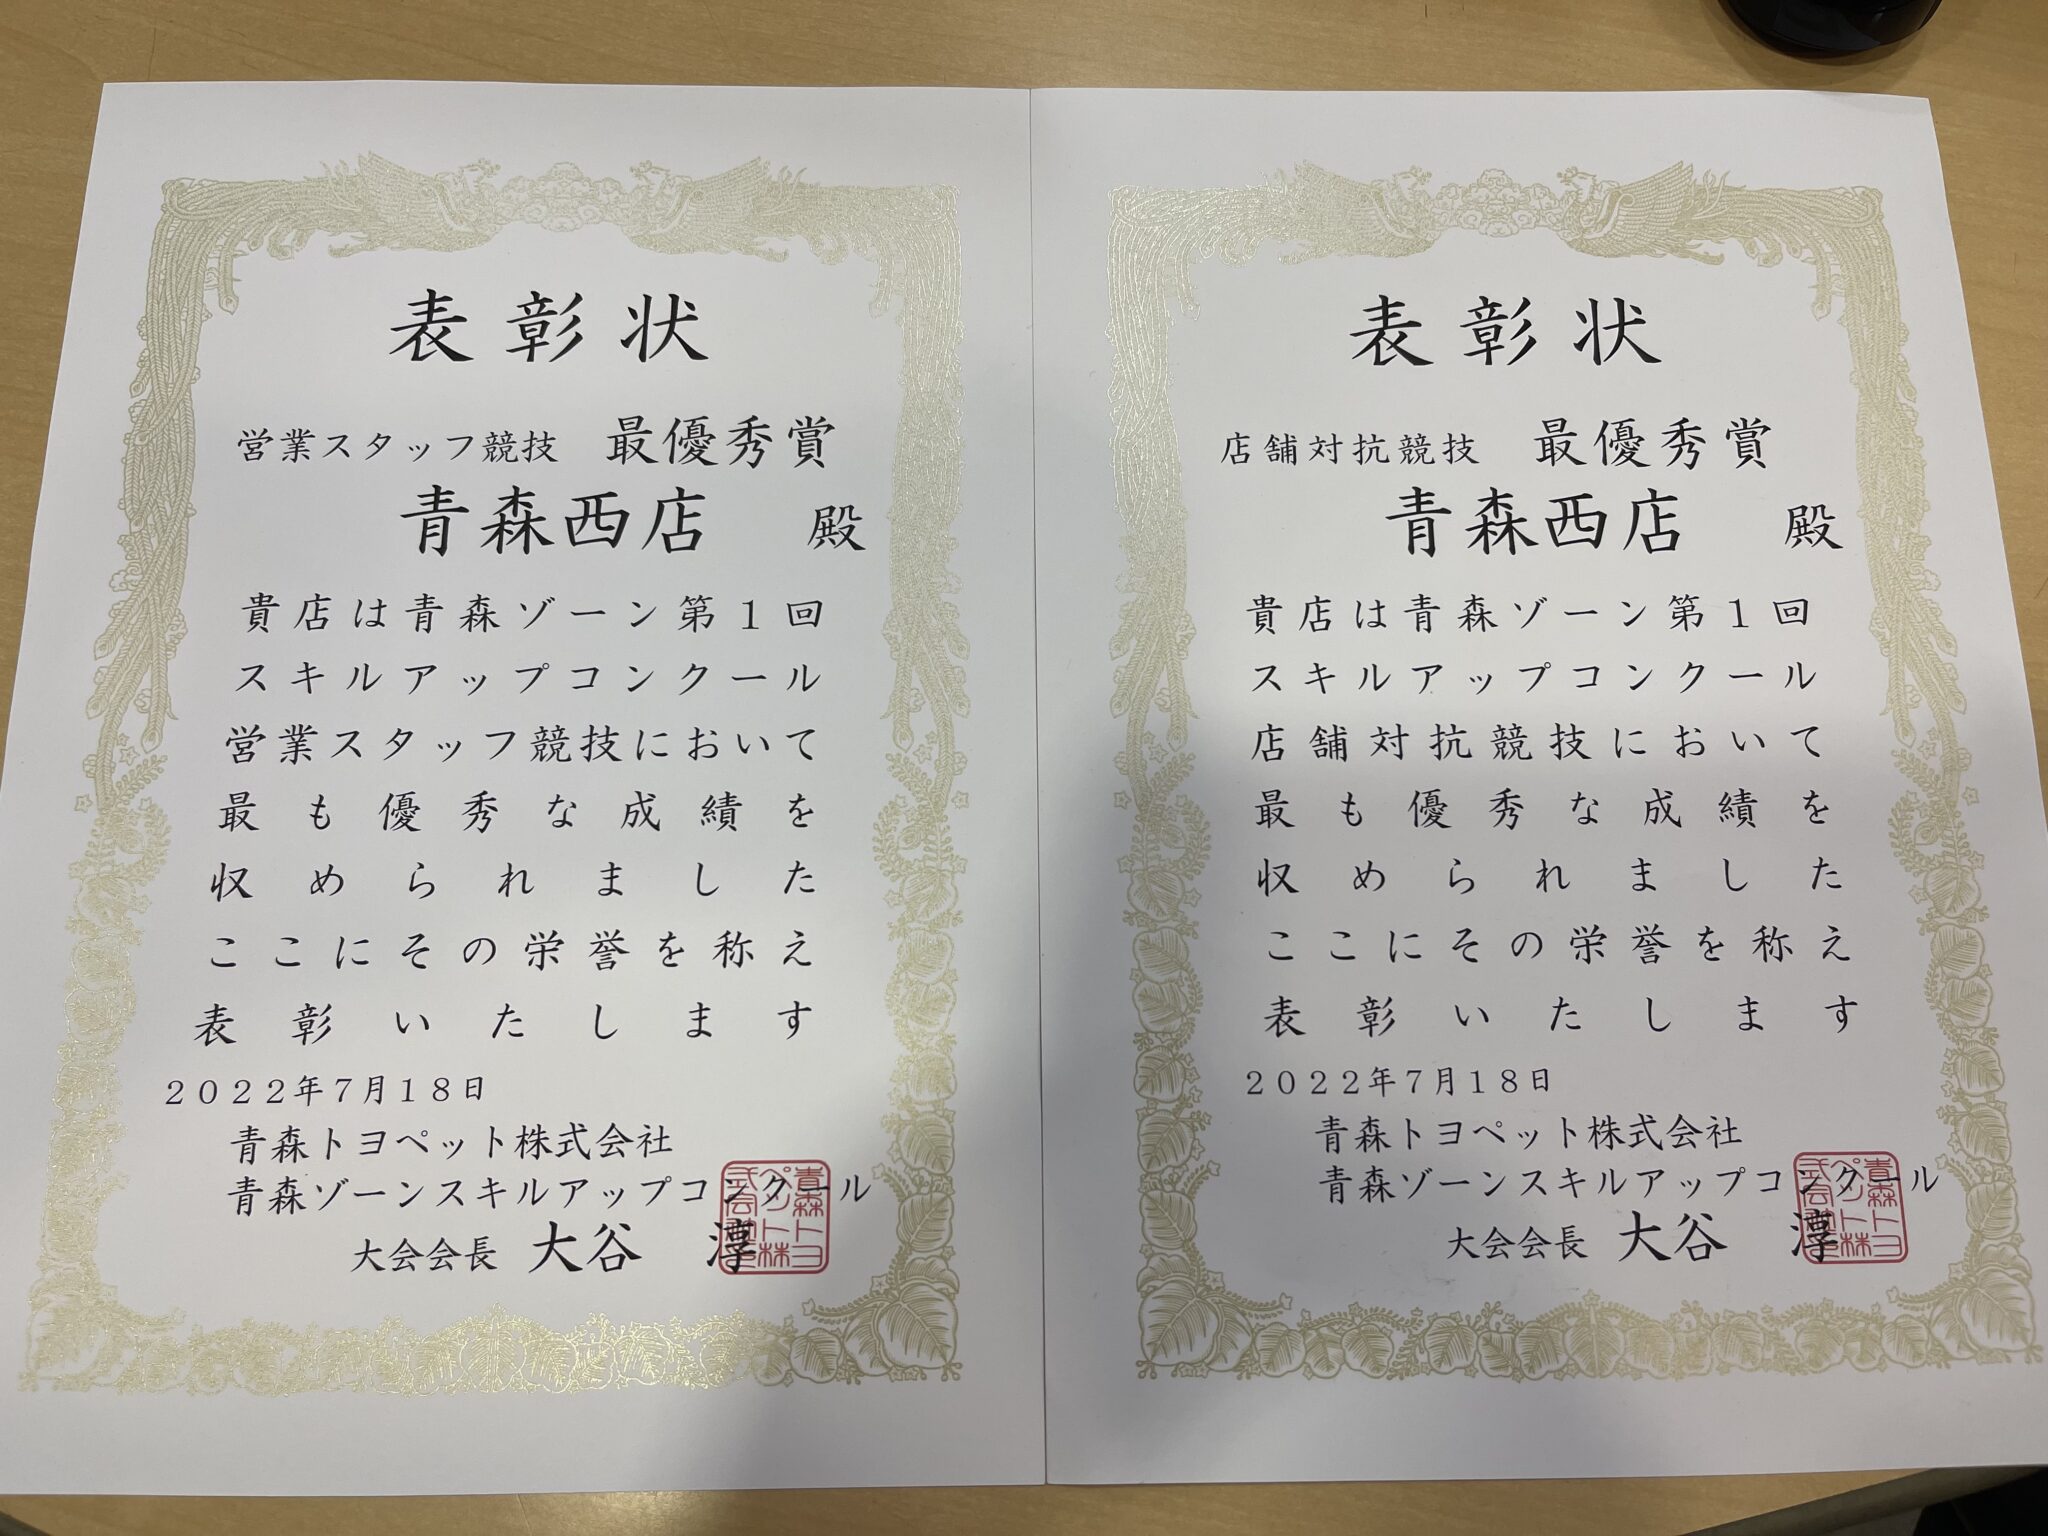 表彰状
営業スタッフ競技 最優秀賞
青森西店 殿
貴店は青森ゾーン第1回
スキルアップコンクール
営業スタッフ競技において
最も優秀な成績を
収められました
ここにその栄誉を称え
表彰いたします
2022年7月18日
青森トヨペット株式会社
青森ゾーンスキルアップコンクール
大会会長 大谷 淳
表彰状
店舗対抗競技 最優秀賞
青森西店 殿
貴店は青森ゾーン第1回
スキルアップコンクール
店舗対抗競技において
最も優秀な成績を
収められました
ここにその栄誉を称え
表彰いたします
2022年7月18日
青森トヨペット株式会社
青森ゾーンスキルアップコンクール
大会会長 大谷 淳